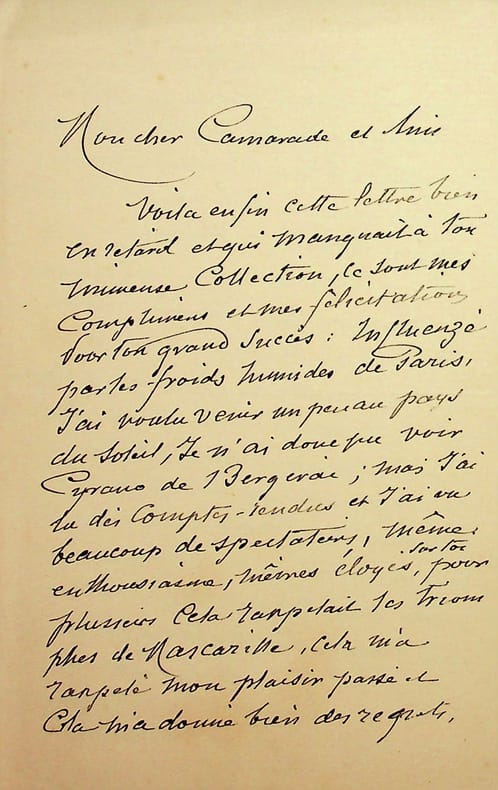 Mon cher Camarade et Ami
Voila enfin cette lettre bien
en retard et qui manquait à ton
immense Collection, ce sont mes
Complimens et mes félicitations
pour ton grand Succès : Influenzé
par les froids humides de Paris,
J'ai voulu venir un peu au pays
du Soleil, Je n'ai donc pu voir
Cyrano de Bergerac ; mais J'ai
lu des Comptes-rendus et J'ai vu
beaucoup de spectateurs, même
enthousiasme, mêmes éloges, sur toi
pour
plusieurs Cela rappelait les triom
phes de Mascarille, Cela m'a
rappelé mon plaisir passé et
Cela m'a donné bien des regrets,